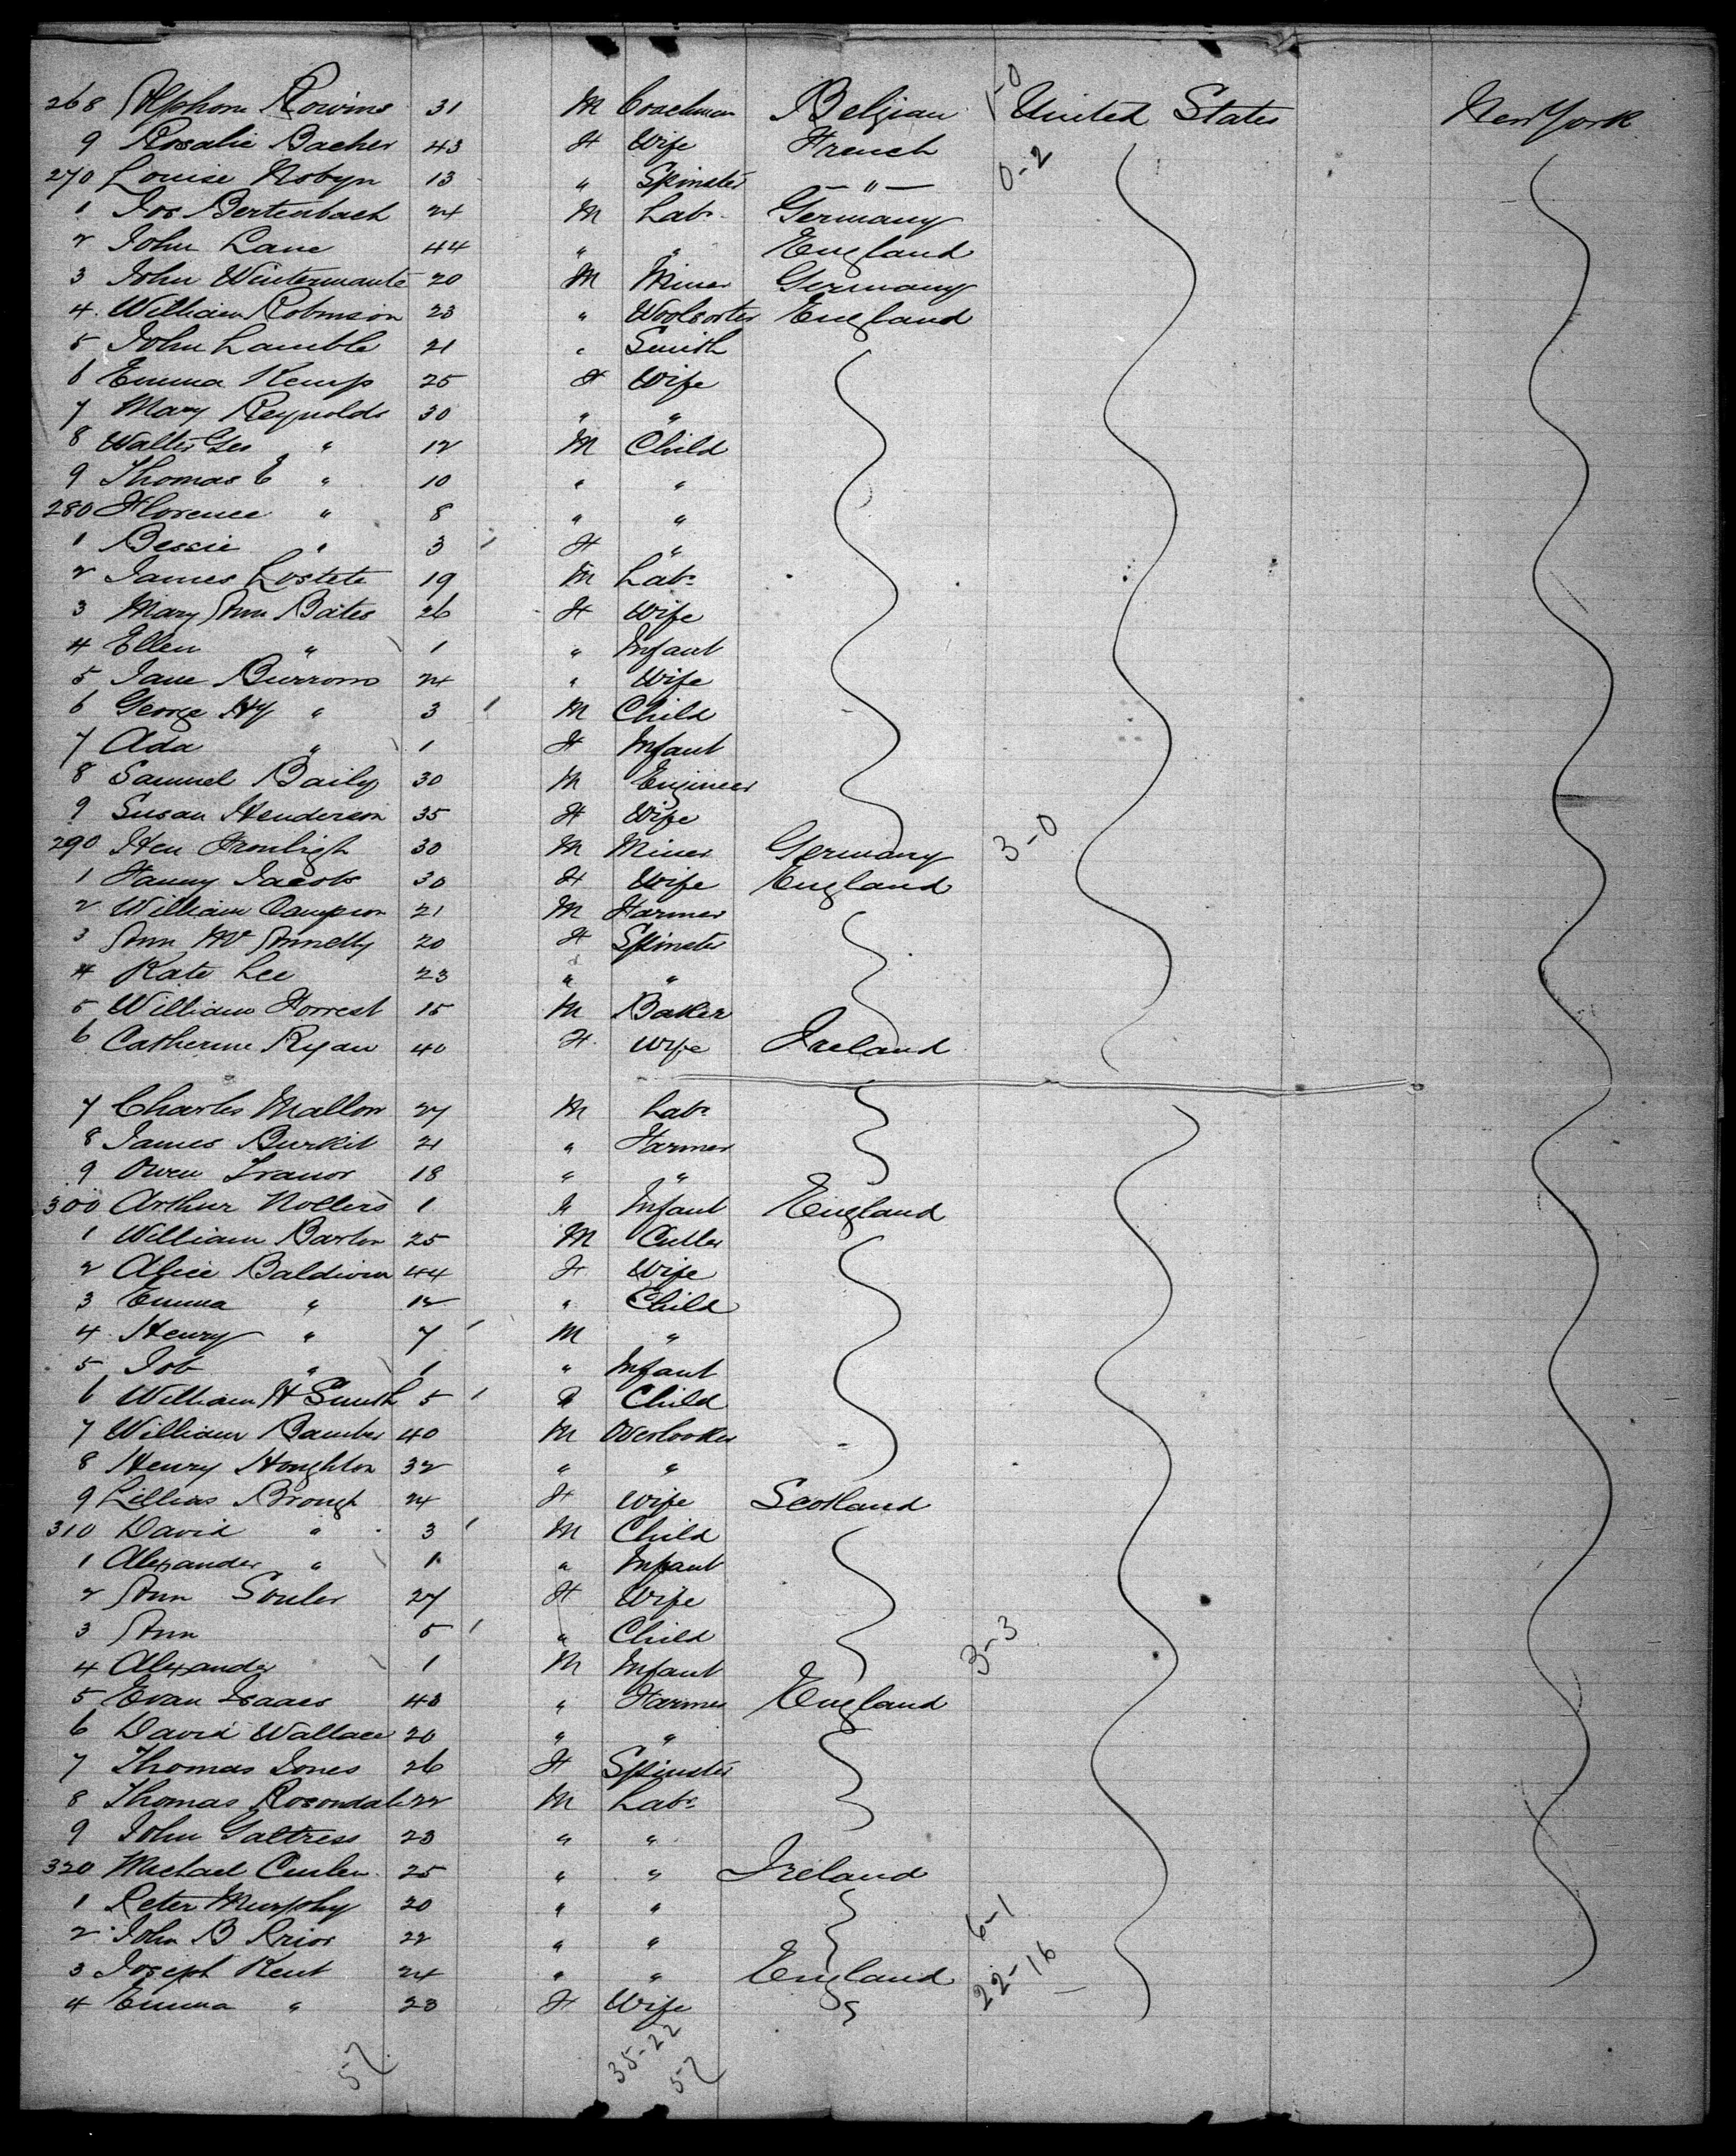 268 Alphons Rowins 31 M Coachman Belgian 1-0 United States New York
9 Rosalie Bacher 43 F Wife French
270 Louise Robyn 13 " Spinster — " — 0-2
1 Jos Bertenbach 24 M Labr Germany
2 John Lane 44 " " England
3 John Wintermante 20 M Miner Germany
4 William Robinson 23 " Woolsorter England
5 John Lamble 21 " Smith
6 Emma Kemp 25 F Wife
7 Mary Reynolds 30 " "
8 Walter Geo " 12 M Child
9 Thomas E " 10 " "
280 Florence " 8 " "
1 Bessie " 3 F "
2 James Lostete 19 M Labr
3 Mary Ann Bates 26 F Wife
4 Ellen " 1 " Infant
5 Jane Burrows 24 " Wife
6 George Hy " 3 M Child
7 Ada " 1 F Infant
8 Samuel Baily 30 M Engineer
9 Susan Henderson 35 F Wife
290 Hen 30 M Miner Germany 3-0
1 Fanny Jacobs 30 F Wife England
2 William Campion 21 M Farmer
3 Ann Mc Annelly 20 F Spinster
4 Kate Lee 23 " "
5 William Forrest 15 M Baker
6 Catherine Ryan 40 F. Wife Ireland
7 Charles Mallon 27 M Labr
8 James Burkit 21 " Farmer
9 Owen Tranor 18 " "
300 Arthur Nollers 1 " Infant England
1 William Barton 25 M Cutler
2 Alice Baldwin 44 F Wife
3 Emma " 12 " Child
4 Henry " 7 M "
5 Job " 1 " Infant
6 William H Smith 5 Child
7 William Bamber 40 M Overlooker
8 Henry Houghton 32 " "
9 Lillias Brough 24 F Wife Scotland
310 David " 3 M Child
1 Alexander " 1 " Infant
2 Ann Souter 27 F Wife
3 Ann 5 " Child
4 Alexander 1 M Infant 3-3
5 Evan Isaacs 40 " Farmer England
6 David Wallace 20 " "
7 Thomas Jones 26 F Spinster
8 Thomas Rosondale 22 M Labr
9 John Galtress 23 " "
320 Michael Cunlen 25 " " Ireland
1 Peter Murphy 20 " "
2 John B Prior 22 " " 6-1
3 Joseph Kent 24 " " England 22-16
4 Emma " 23 F Wife
57 35-22
57